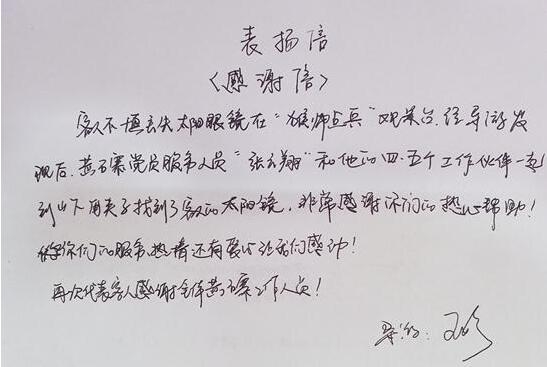 表扬信
<感谢信>
客人不慎丢失太阳眼镜在“猴帅点兵”观景台,经导游发
现后,黄石寨党员服务人员“张云翔”和他的四、五个工作伙伴一起
到山下用夹子找到了客人的太阳镜,非常感谢你们的热心帮助!
你们的服务热情还有爱心让我们感动!
再次代表客人感谢全体黄石寨工作人员!
导游: